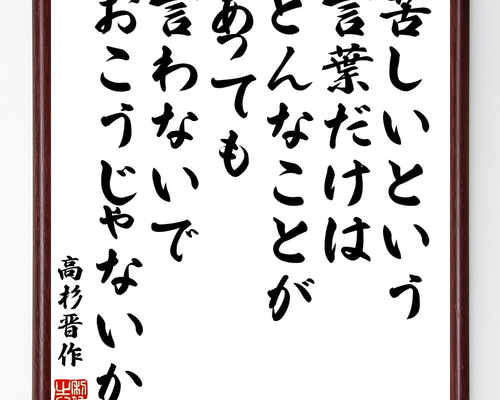 苦しいという
言葉だけは
どんなことが
あっても
言わないで
おこうじゃないか
高杉晋作